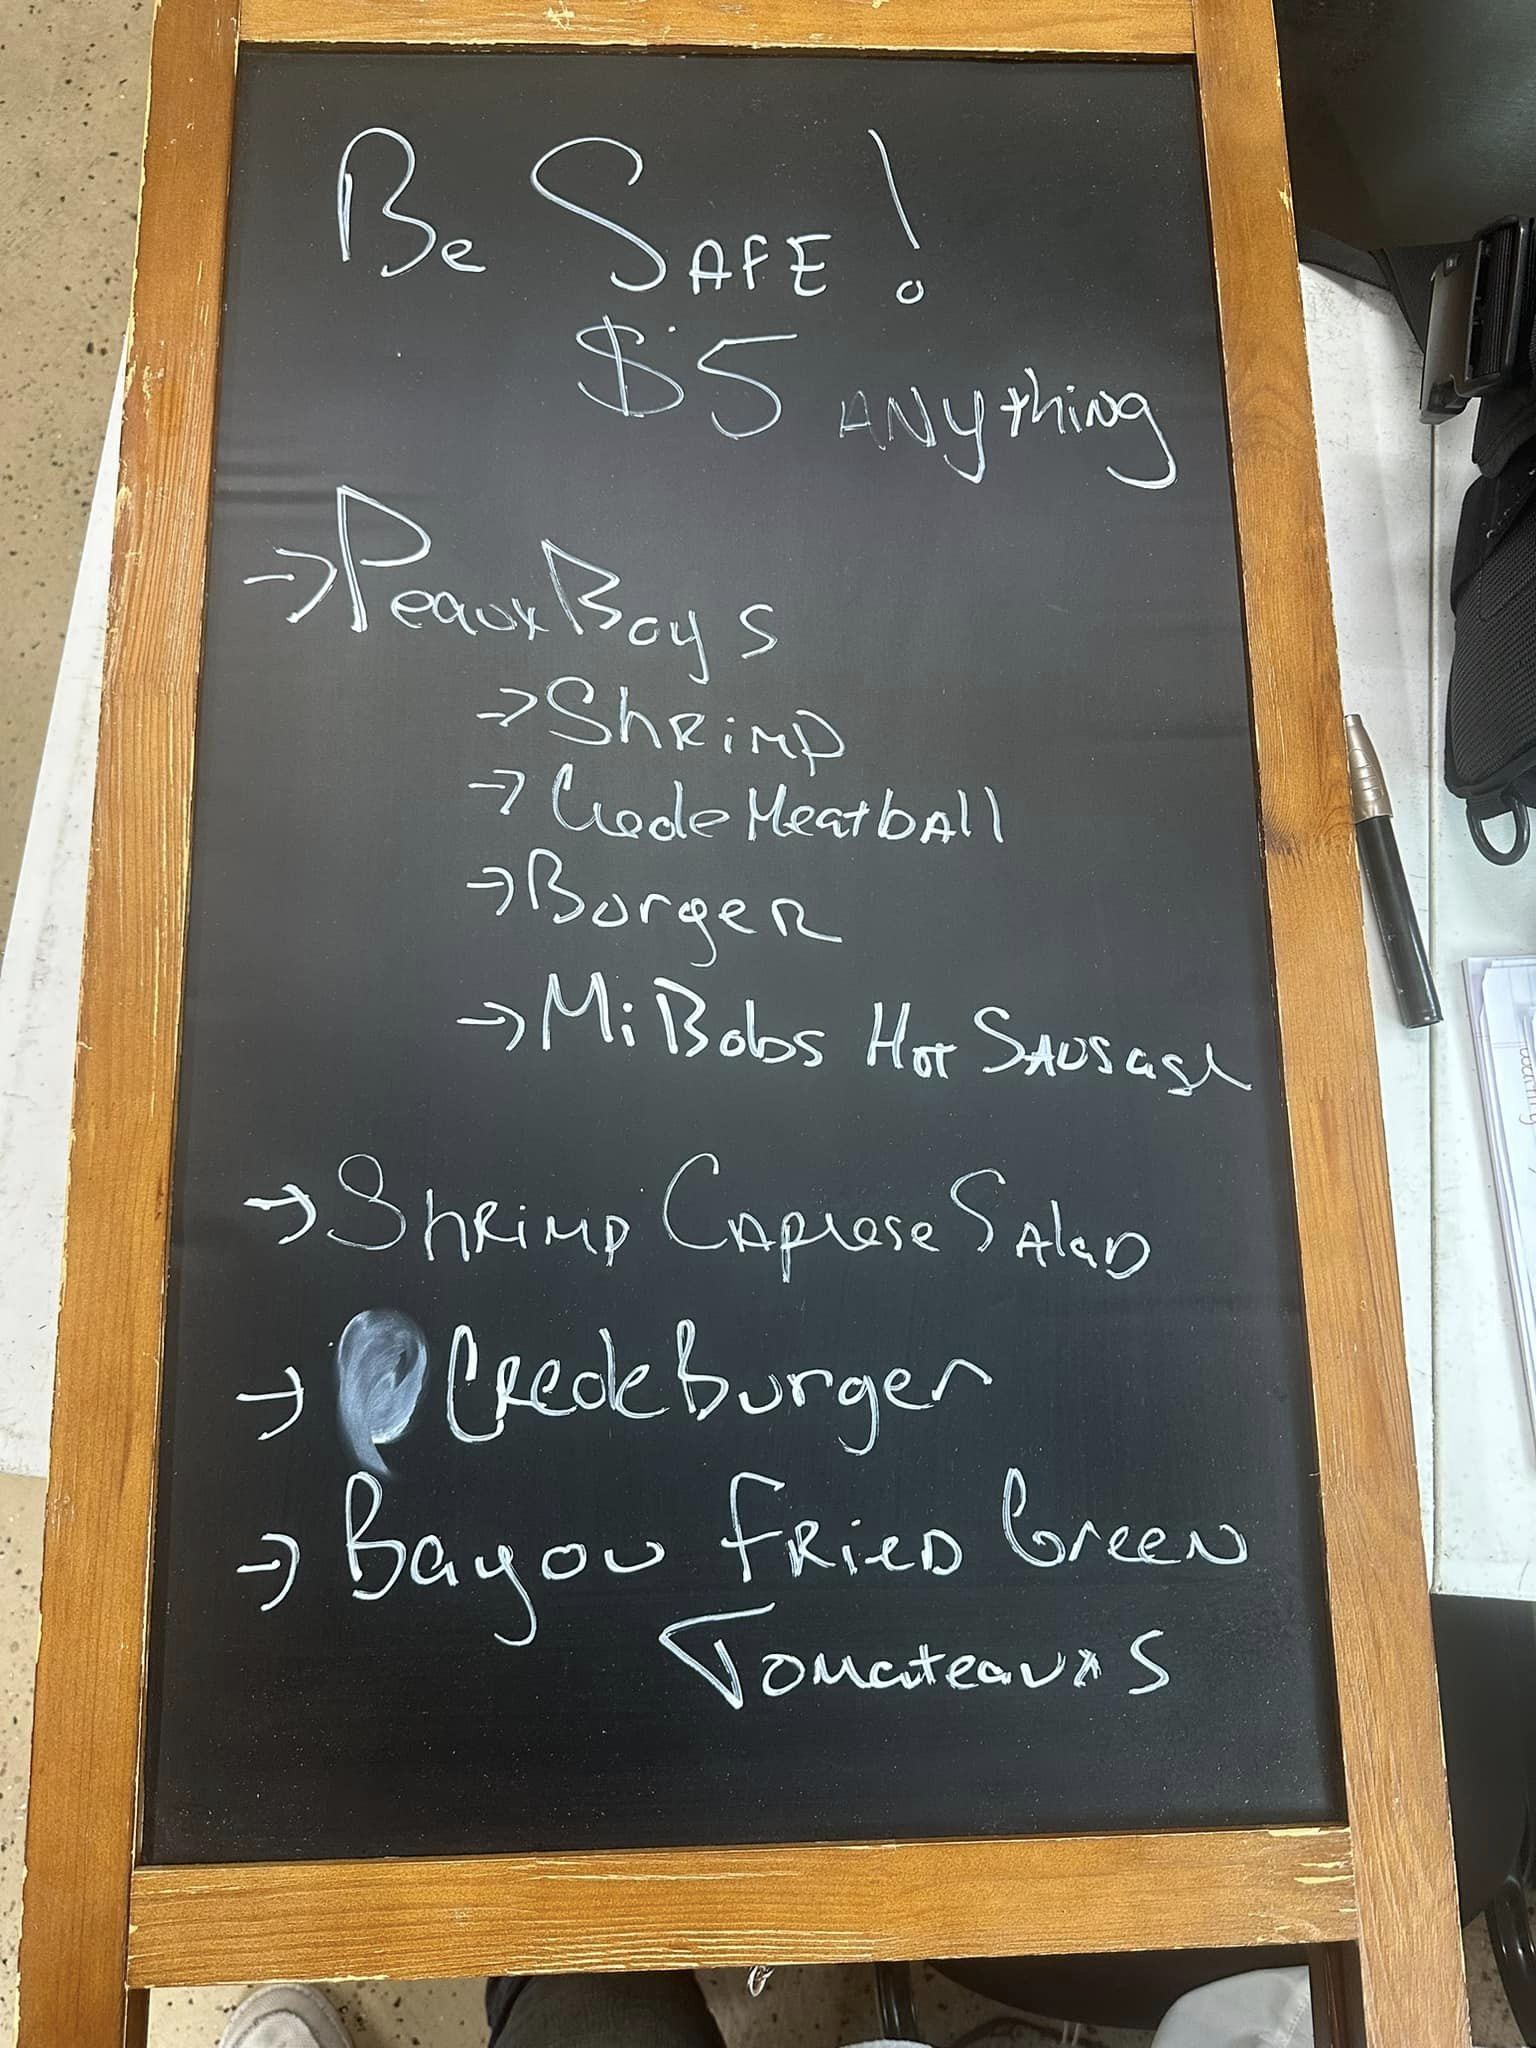 Be SAFE!
$5 ANything
→ PeauxBoys
→ Shrimp
→ Creole Meatball
→ Burger
→ Mi Bobs Hot Sausage
→ Shrimp Caprese Salad
→ Creole Burger
→ Bayou Fried Green
Tomateauxs